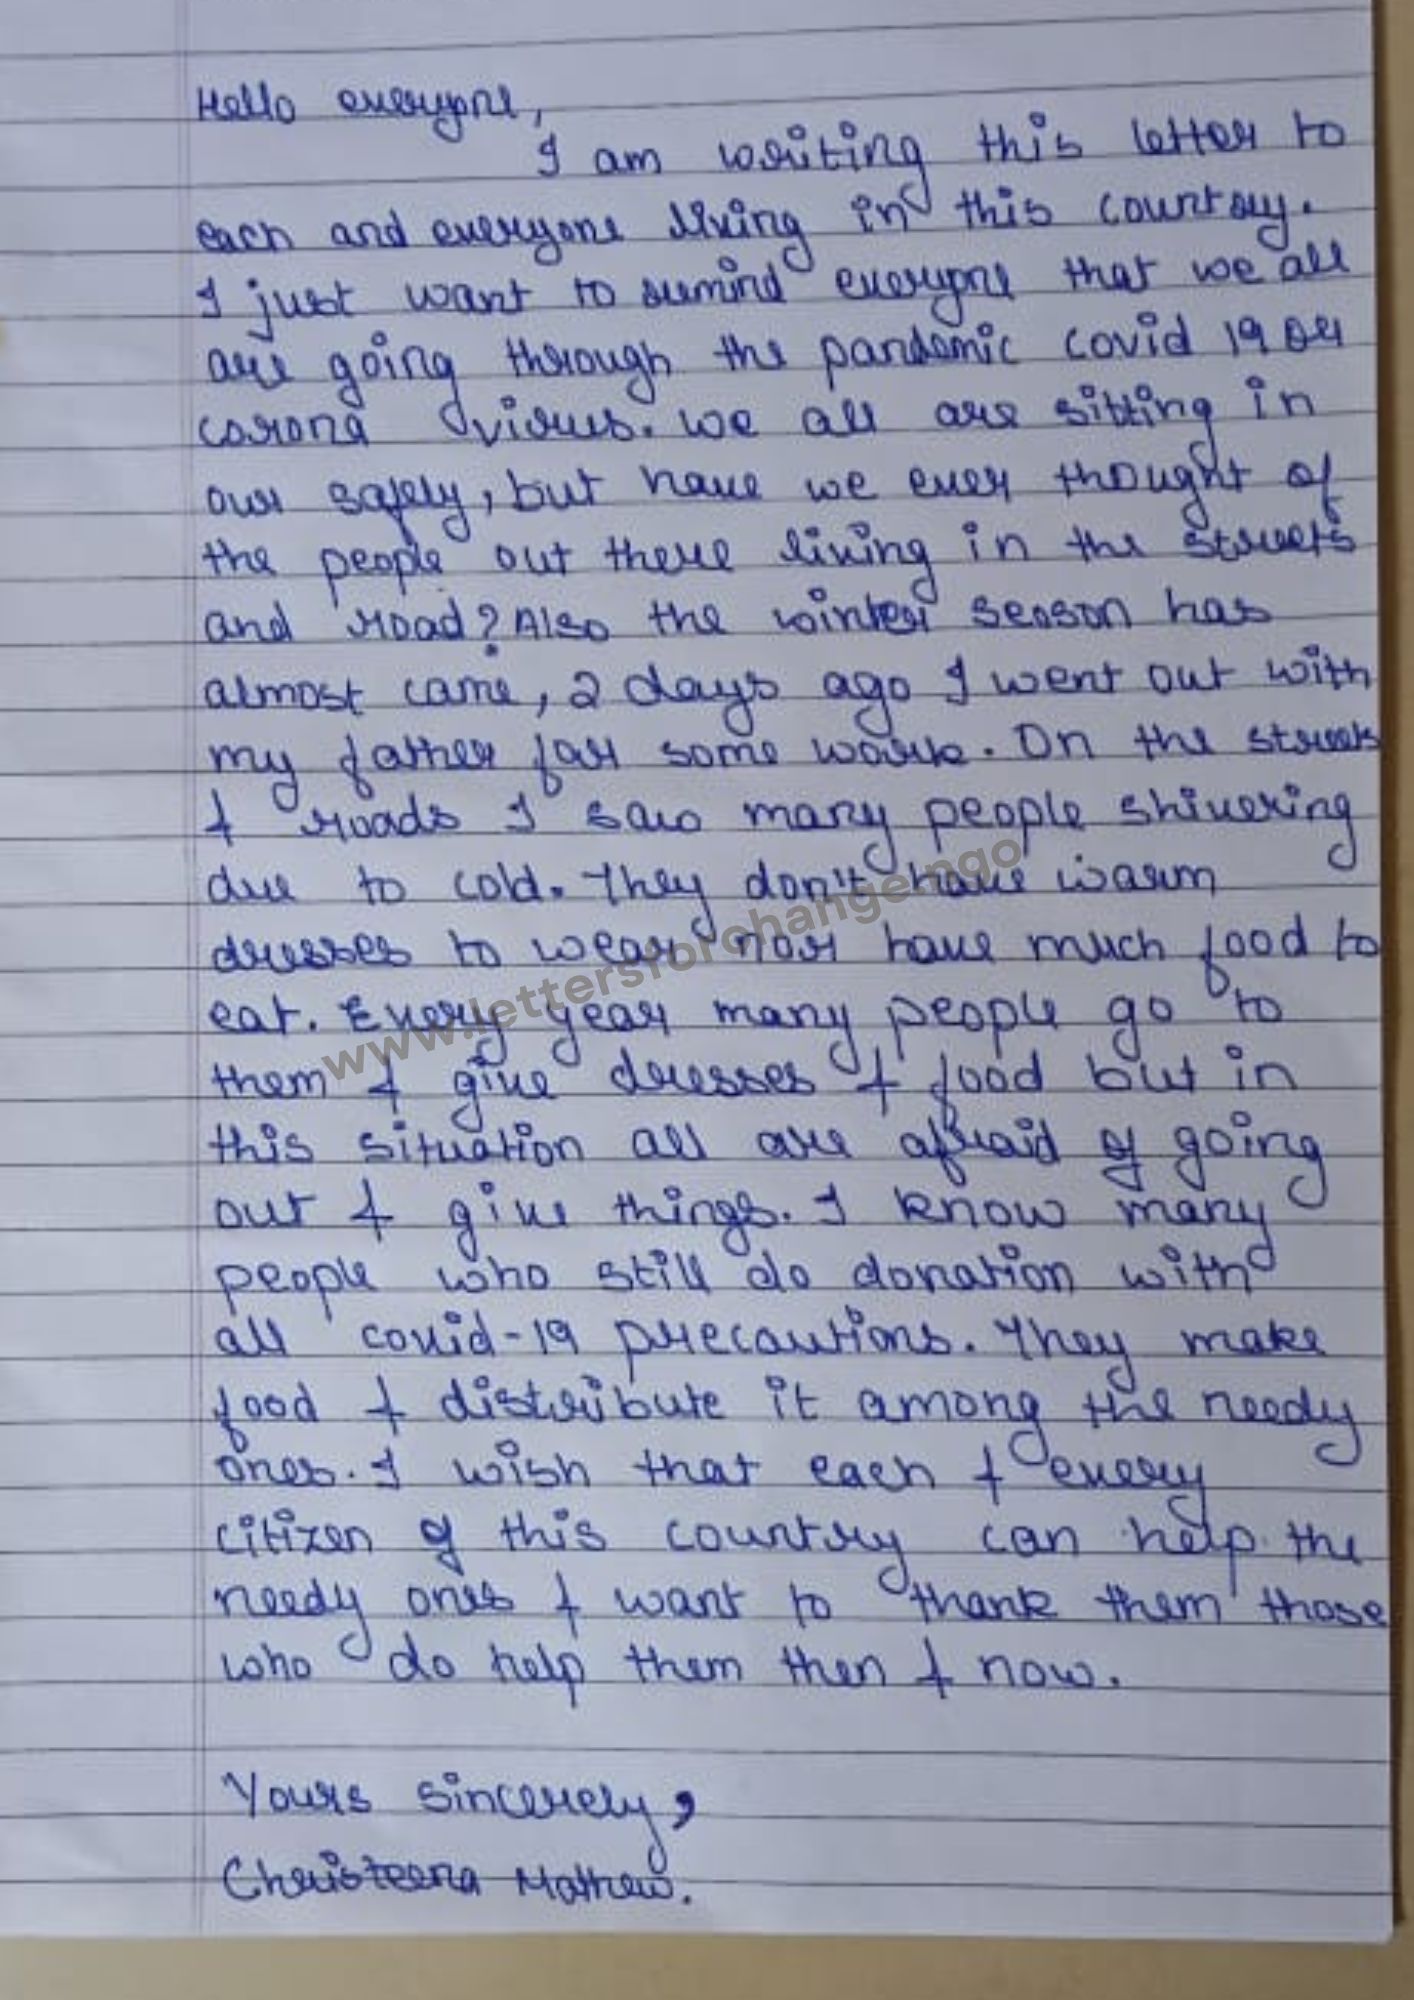 Hello everyone,
I am writing this letter to
each and everyone living in this country.
I just want to remind everyone that we all
are going through the pandemic covid 19 or
corona virus. we all are sitting in
our safely, but have we ever thought of
the people out there living in the streets
and road? Also the winter season has
almost came, 2 days ago I went out with
my father for some work. On the streets
& roads I saw many people shivering
due to cold. They don't have warm
dresses to wear nor have much food to
eat. Every year many people go to
them & give dresses & food but in
this situation all are afraid of going
out & give things. I know many
people who still do donation with
all covid-19 precautions. They make
food & distribute it among the needy
ones. I wish that each & every
citizen of this country can help the
needy ones & want to thank them those
who do help them then & now.
Yours sincerely,
Christeena Mathew.
www.lettersforchange.ngo